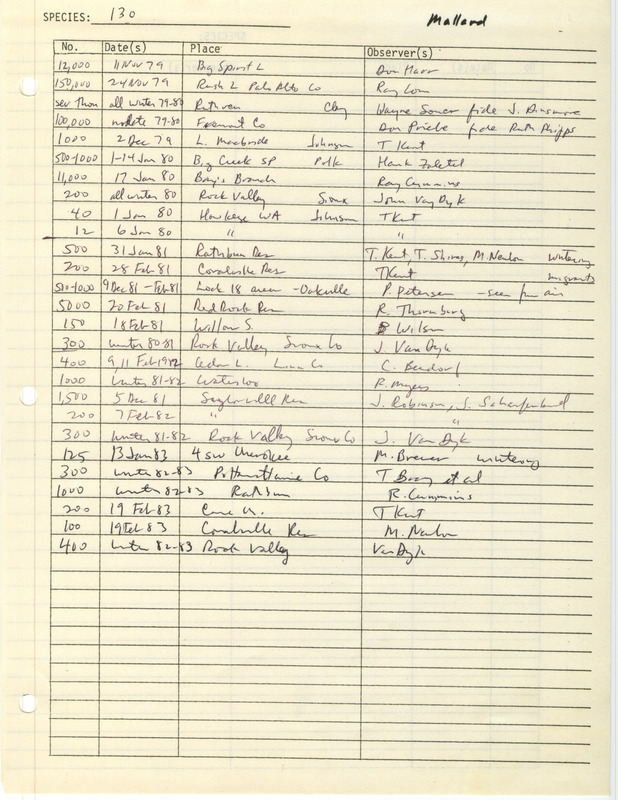 SPECIES: 130 Mallard
No. Date(s) Place Observer(s)
12,000 11 Nov 79 Big Spirit L Don Harr
150,000 24 Nov 79 Rush L Palo Alto Co Ray
sev Thou all winter 79-80 Ruthven Clay Wayne fide J. Dinsmore
100,000 no date 79-80 Fremont Co Don Priebe fide Ruth Phipps
1000 2 Dec 79 L. Macbride Johnson T Kent
500-1000 1-14 Jan 80 Big Creek SP Polk Hank Zaletel
11,000 17 Jan 80 Bays Branch Ray Cummins
200 all winter 80 Rock Valley Sioux John Van Dyk
40 1 Jan 80 Hawkeye WA Johnson T Kent
12 6 Jan 80 " "
500 31 Jan 81 Rathbun Res T. Kent, T. Shires, M. Newlon wintering
200 28 Feb 81 Coralville Res T Kent migrants
500-1000 9 Dec 81 - Feb 81 Lock 18 area - Oakville P. Petersen - seen from air
5000 20 Feb 81 Red Rock Res R. Thornburg
150 18 Feb 81 Willow S. B Wilson
300 winter 80-81 Rock Valley Sioux Co J. Van Dyk
400 9, 11 Feb 1982 Cedar L. Linn Co C. Bendorf
1000 winter 81-82 Waterloo R. Myers
1,500 5 Dec 81 Saylorville Res J. Robinson, J.
200 7 Feb 82 " "
300 winter 81-82 Rock Valley Sioux Co J. Van Dyk
125 13 Jan 83 4 SW Cherokee M. Brewer wintering
300 winter 82-83 Pottawattamie Co T Bray et al
1000 winter 82-83 Rathbun R. Cummins
200 19 Feb 83 Cone M. T Kent
100 19 Feb 83 Coralville Res M. Newlon
400 winter 82-83 Rock Valley Van Dyk